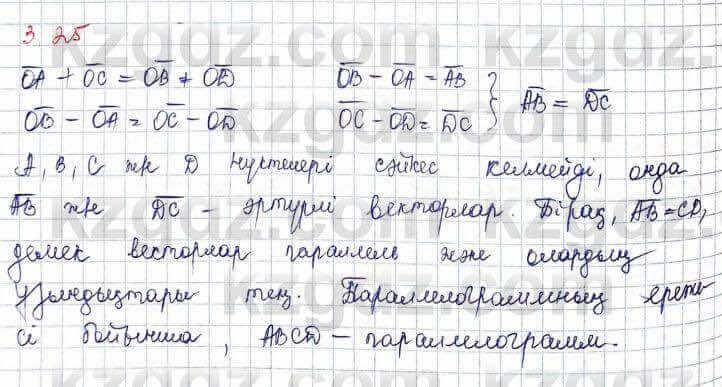 3 25
O̅A̅ + O̅C̅ = O̅B̅ + O̅D̅   O̅B̅ - O̅A̅ = A̅B̅
O̅B̅ - O̅A̅ = O̅C̅ - O̅D̅   O̅C̅ - O̅D̅ = D̅C̅ } A̅B̅ = D̅C̅
A, B, C жк D нүктелері сәйкес келмейді, онда
A̅B̅ жк D̅C̅ - әртүрлі векторлар. Бірақ, A̅B̅ = C̅D̅,
демек весторлар параллель және олардың
ұзындықтары тең. Параллелограммның ереже
сі бойынша, ABCD - параллелограмм.